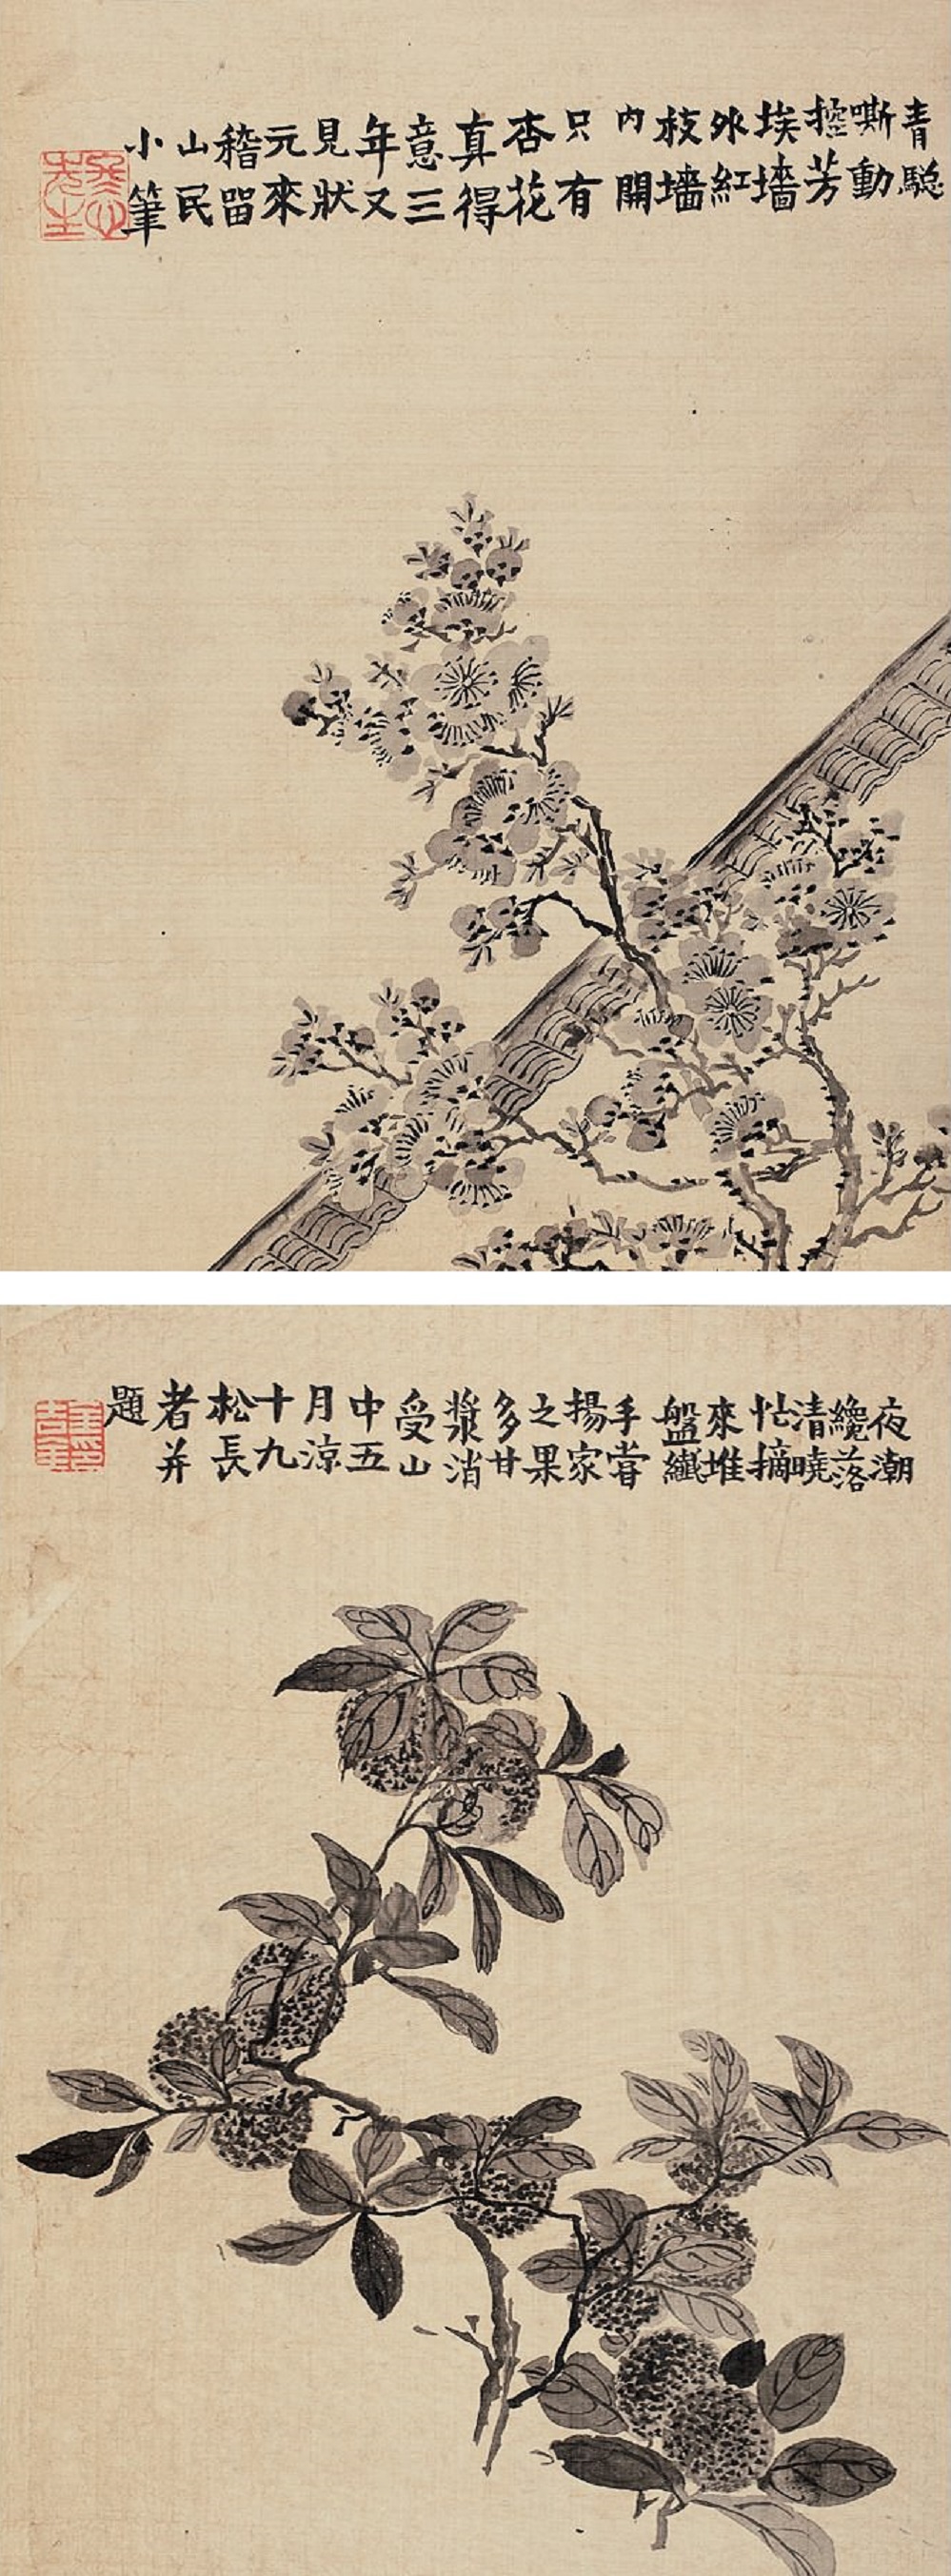 青騘
嘶動
控芳
埃墻
外紅
枝墻
内開
只有
杏花
真得
意三
年又
見狀
元來
稽留
山民
小筆
冬心
先生
夜潮
纔落
清曉
忙摘
來堆
盤纖
手嘗
揚家
之果
多甘
漿消
受山
中五
月涼
十九
松長
者并
題